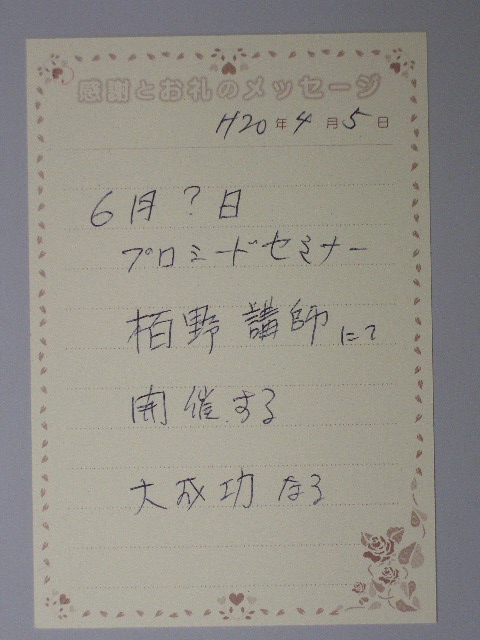 感謝とお礼のメッセージ
H20年4月5日
6月?日
プロミードセミナー
栢野講師にて
開催する
大成功なる